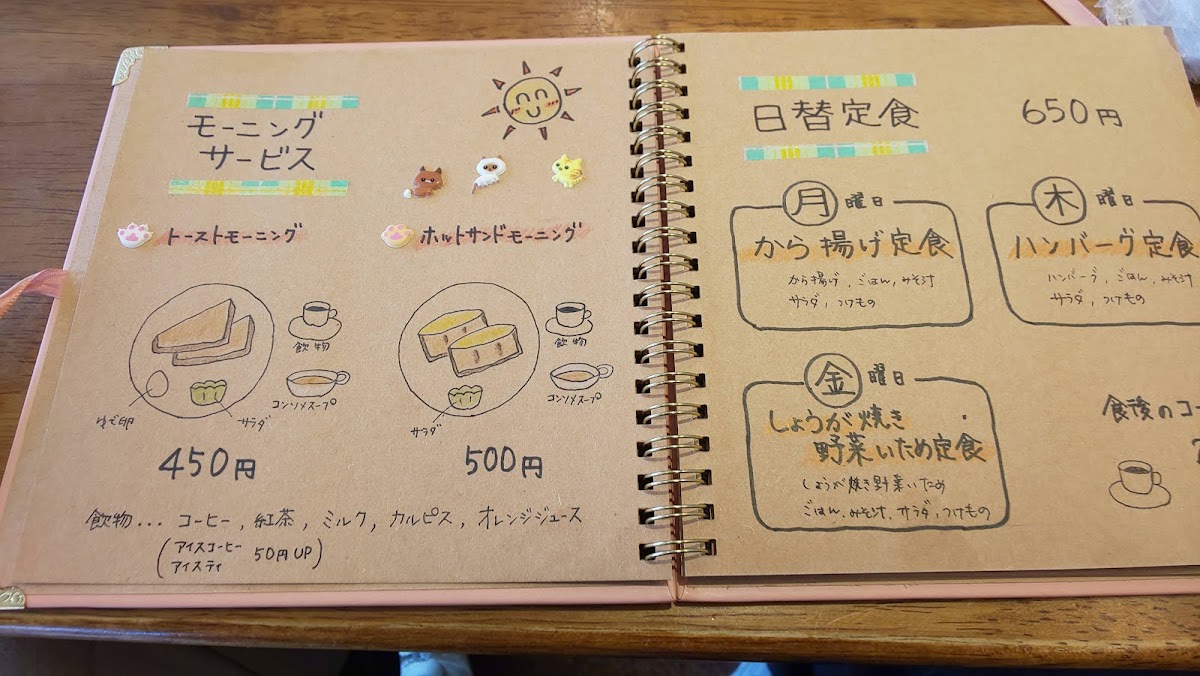 モーニング
サービス
トーストモーニング
飲物
コンソメスープ
ゆで卵
サラダ
450円
ホットサンドモーニング
飲物
コンソメスープ
サラダ
500円
飲物... コーヒー, 紅茶, ミルク, カルピス, オレンジジュース
(アイスコーヒー
アイスティ 50円UP)
日替定食 650円
月曜日
から揚げ定食
から揚げ, ごはん, みそ汁
サラダ, つけもの
木曜日
ハンバーグ定食
ハンバーグ, ごはん, みそ汁
サラダ, つけもの
金曜日
しょうが焼き
野菜いため定食
しょうが焼き野菜いため
ごはん, みそ汁, サラダ, つけもの
食後のコ